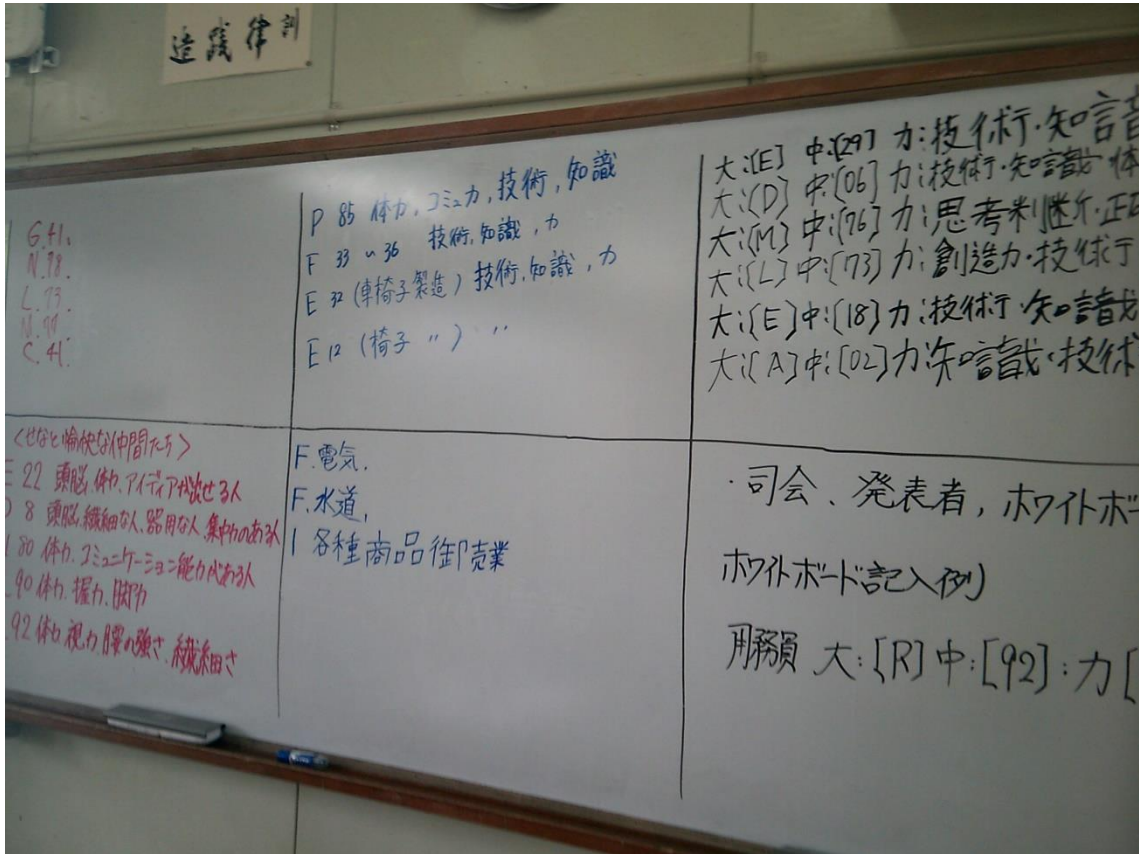 造 践 律 訓
G.41.
N.78.
L.73.
N.77.
C.41.
P 85 体力, コミュ力, 技術, 知識
F 33 〜 36 技術, 知識, 力
E 32 (車椅子製造) 技術, 知識, 力
E 12 (椅子 〃) 〃
大:[E] 中:[29] 力:技術・知識
大:[D] 中:[06] 力:技術・知識・体
大:[M] 中:[76] 力:思考判断・正確
大:[L] 中:[73] 力:創造力・技術
大:[E] 中:[18] 力:技術・知識
大:[A] 中:[02] 力:知識・技術
<せなと愉快な仲間たち>
E 22 頭脳、体力、アイディアが出せる人
D 8 頭脳、繊細な人、器用な人、集中力のある人
I 80 体力、コミュニケーション能力がある人
90 体力、握力、脚力
92 体力、視力、腰の強さ、繊細さ
F.電気.
F.水道,
I 各種商品卸売業
・司会、発表者,ホワイトボー
ホワイトボード記入例)
用務員 大:[R] 中:[92]:力[